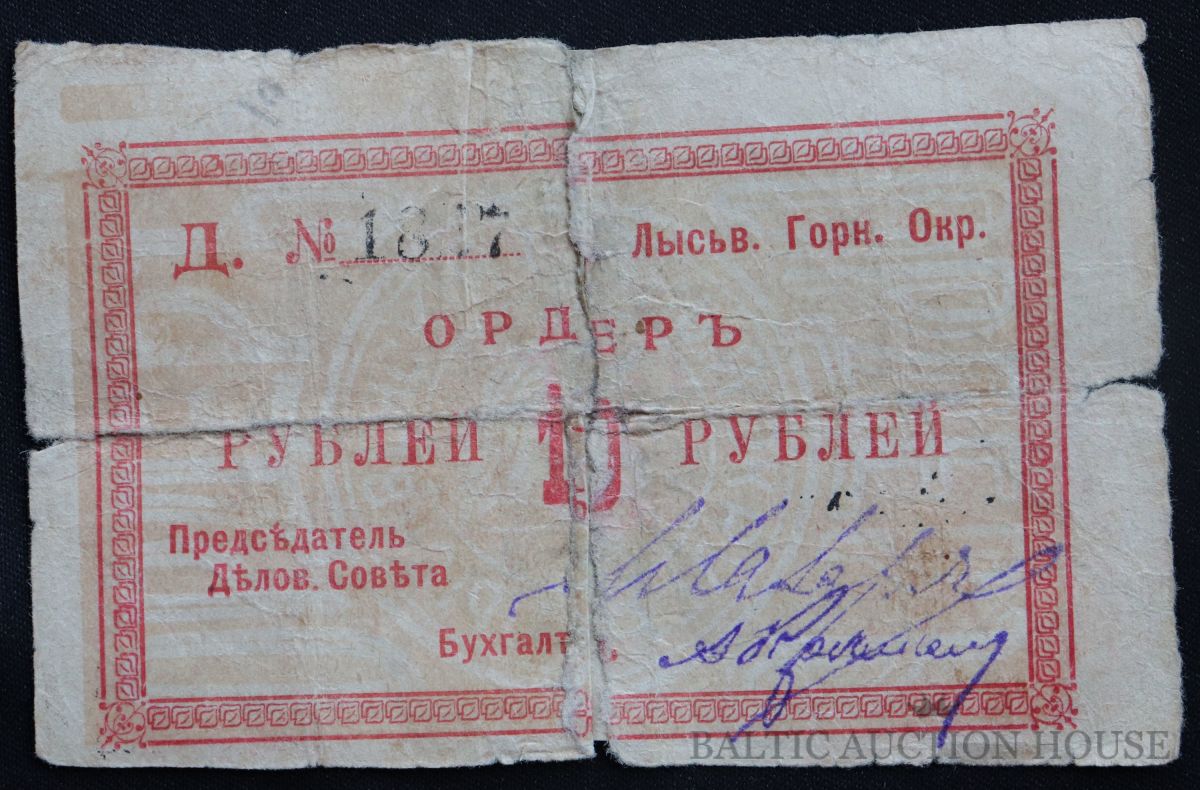 Д. № Лысьв. Горн. Окр.
ОРДЕРЪ
РУБЛЕЙ 10 РУБЛЕЙ
Предсѣдатель
Дѣлов. Совѣта
Бухгалтер.
BALTIC AUCTION HOUSE